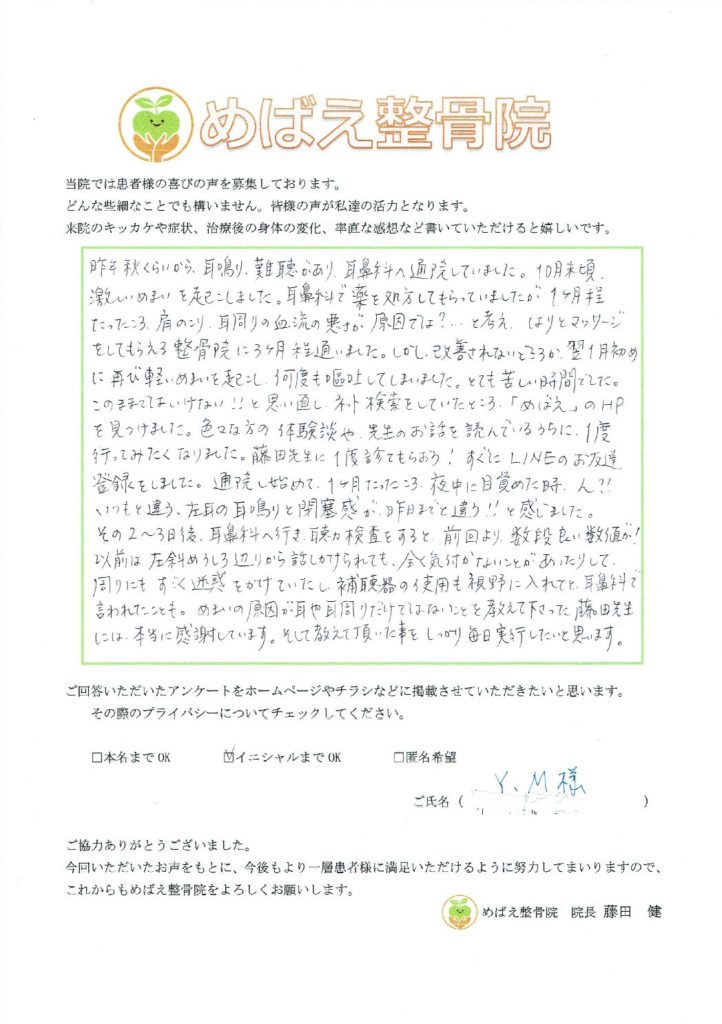 めばえ整骨院
当院では患者様の喜びの声を募集しております。
どんな些細なことでも構いません。皆様の声が私達の活力となります。
来院のキッカケや症状、治療後の身体の変化、率直な感想など書いていただけると嬉しいです。
昨年秋くらいから、耳鳴り、難聴があり、耳鼻科へ通院していました。10月末頃、
激しいめまいを起こしました。耳鼻科で薬を処方してもらっていましたが1ヶ月程
たったころ、肩のこり、耳周りの血流の悪さが原因では?…と考え、はりとマッサージ
をしてもらえる整骨院に3ヶ月程通いました。しかし、改善されないどころか、翌1月初め
に再び軽いめまいを起こし、何度も嘔吐してしまいました。とても苦しい時間でした。
このままではいけない!!と思い直し、ネット検索をしていたところ、「めばえ」のHP
を見つけました。色々な方の体験談や、先生のお話を読んでいるうちに、1度
行ってみたくなりました。藤田先生に1度診てもらおう!すぐにLINEのお友達
登録をしました。通院し始めて、1ヶ月たったころ、夜中に目覚めた時、ん?!
いつもと違う、左耳の耳鳴りと閉塞感が、昨日までと違う!!と感じました。
その2〜3日後、耳鼻科へ行き、聴力検査をすると、前回より、数段良い数値が!
以前は左斜めうしろ辺りから話しかけられても、全く気付かないことがあったりして、
周りにもすごく迷惑をかけていたし、補聴器の使用も視野に入れてと、耳鼻科で
言われたことも。めまいの原因が耳や耳周りだけではないことを教えて下さった藤田先生
には、本当に感謝しています。そして教えて頂いた事をしっかり毎日実行したいと思います。
ご回答いただいたアンケートをホームページやチラシなどに掲載させていただきたいと思います。
その際のプライバシーについてチェックしてください。
□本名までOK ☑イニシャルまでOK □匿名希望
ご氏名( Y.M様 )
ご協力ありがとうございました。
今回いただいたお声をもとに、今後もより一層患者様に満足いただけるように努力してまいりますので、
これからもめばえ整骨院をよろしくお願いします。
めばえ整骨院 院長 藤田 健